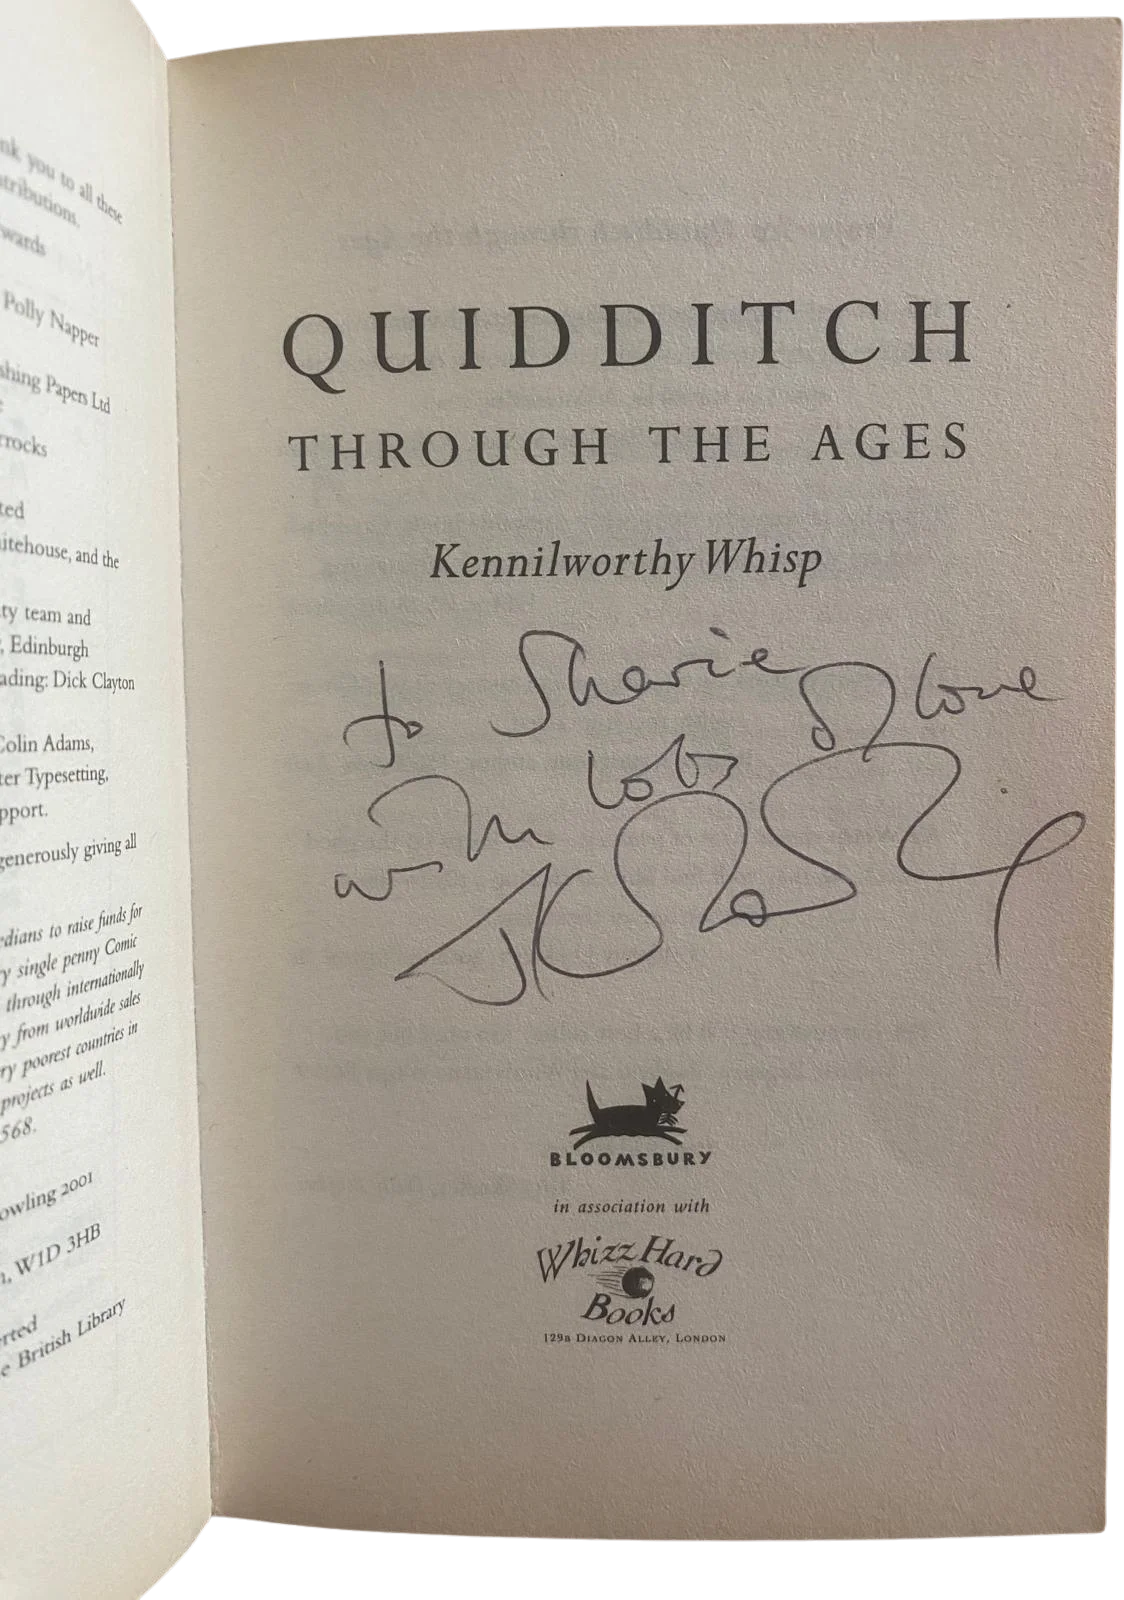 nk you to all these
tributions.
wards
Polly Napper
shing Papers Ltd
rrocks
ted
itehouse, and the
ty team and
, Edinburgh
ading: Dick Clayton
Colin Adams,
ter Typesetting,
pport.
generously giving all
edians to raise funds for
y single penny Comic
through internationally
y from worldwide sales
ry poorest countries in
projects as well.
568.
owling 2001
n, W1D 3HB
erted
e British Library
QUIDDITCH
THROUGH THE AGES
Kennilworthy Whisp
to Sharie
with lots of love
JK Rowling
BLOOMSBURY
in association with
Whizz Hard
Books
129B DIAGON ALLEY, LONDON